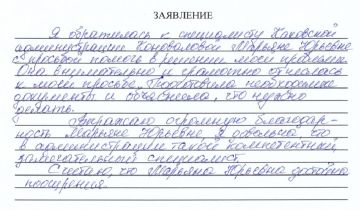 ЗАЯВЛЕНИЕ
Я обратилась к специалисту Каховской
администрации Коноваловой Марьяне Юрьевне
с просьбой помочь в решении моей проблемы.
Она внимательно и грамотно отнеслась
к моей просьбе. Подготовила необходимые
документы и объяснила, что нужно
делать.
Выражаю огромную благодар-
ность Марьяне Юрьевне. Я довольна, что
в администрации такой компетентный,
замечательный специалист.
Считаю, что Марьяна Юрьевна достойна
поощрения.